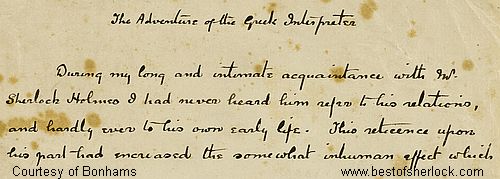 The Adventure of the Greek Interpreter
During my long and intimate acquaintance with Mr.
Sherlock Holmes I had never heard him refer to his relations,
and hardly ever to his own early life. This reticence upon
his part had encreased the somewhat inhuman effect which
Courtesy of Bonhams www.bestofsherlock.com